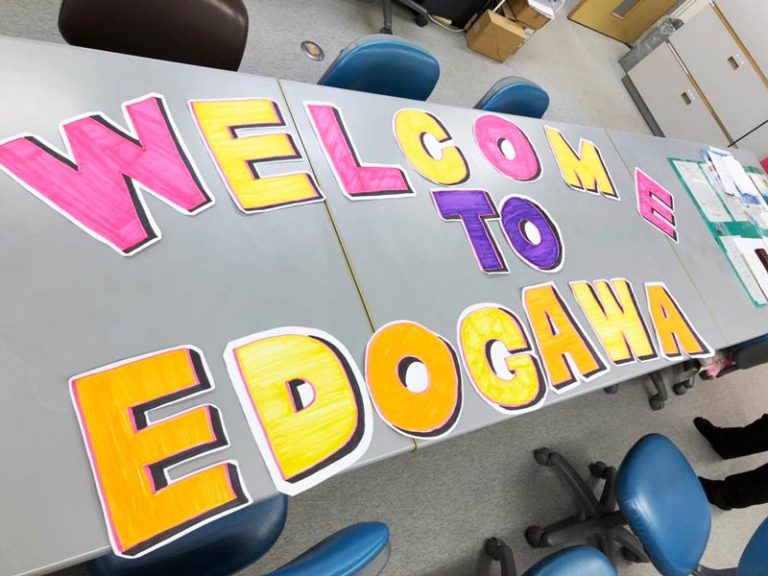 WELCOME
TO
EDOGAWA